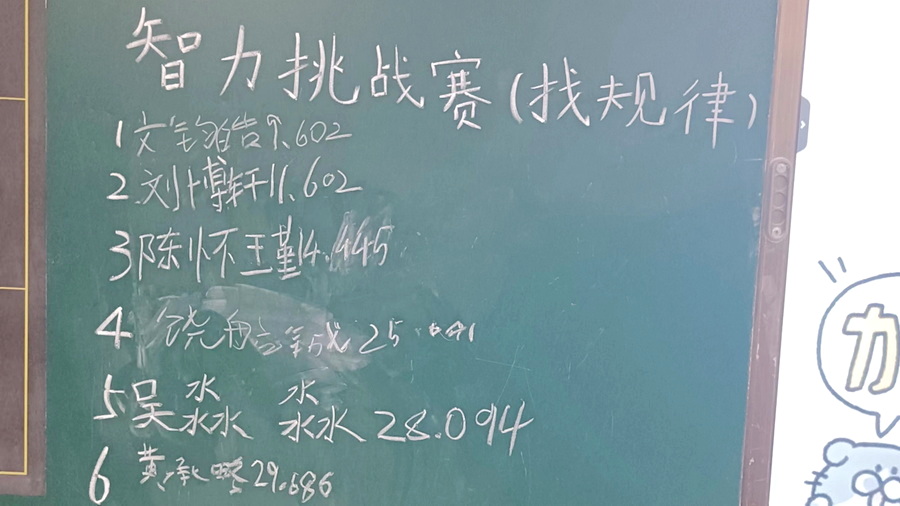 智力挑战赛(找规律)
1 文 9.602
2.刘博轩11.602
3陈怀瑾14.445
4 饶 25
5.吴淼淼28.094
6 黄承 29.686
力